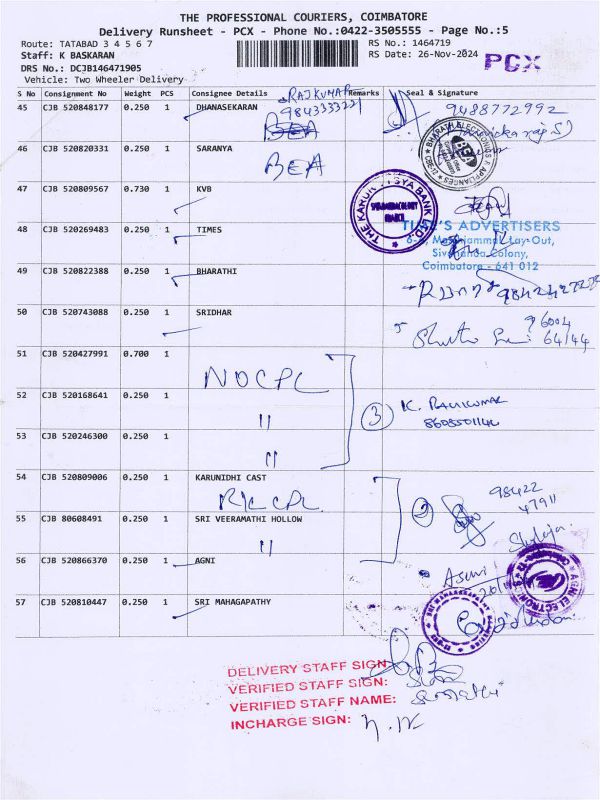 THE PROFESSIONAL COURIERS, COIMBATORE
Delivery Runsheet - PCX - Phone No.:0422-3505555 - Page No.:5
Route: TATABAD 3 4 5 6 7
Staff: K BASKARAN
DRS No.: DCJB146471905
Vehicle: Two Wheeler Delivery
RS No.: 1464719
RS Date: 26-Nov-2024
PCX
S No Consignment No Weight PCS Consignee Details Remarks Seal & Signature
45 CJB 520848177 0.250 1 DHANASEKARAN
RAJKUMAR
9843333221
9488772992
46 CJB 520820331 0.250 1 SARANYA
BEA
BHARATH ELECTRONICS & APPLIANCES
BEA
47 CJB 520809567 0.730 1 KVB
THE KARUR VYSYA BANK LTD.
48 CJB 520269483 0.250 1 TIMES
TIME'S ADVERTISERS
Lay-Out,
Sivananda Colony,
Coimbatore - 641 012
49 CJB 520822388 0.250 1 BHARATHI
50 CJB 520743088 0.250 1 SRIDHAR
96004
64144
51 CJB 520427991 0.700 1
NOCPL
52 CJB 520168641 0.250 1
"
3
53 CJB 520246300 0.250 1
"
54 CJB 520809006 0.250 1 KARUNIDHI CAST
2
98422
47911
55 CJB 80608491 0.250 1 SRI VEERAMATHI HOLLOW
"
56 CJB 520866370 0.250 1 AGNI
57 CJB 520810447 0.250 1 SRI MAHAGAPATHY
DELIVERY STAFF SIGN:
VERIFIED STAFF SIGN:
VERIFIED STAFF NAME:
INCHARGE SIGN: